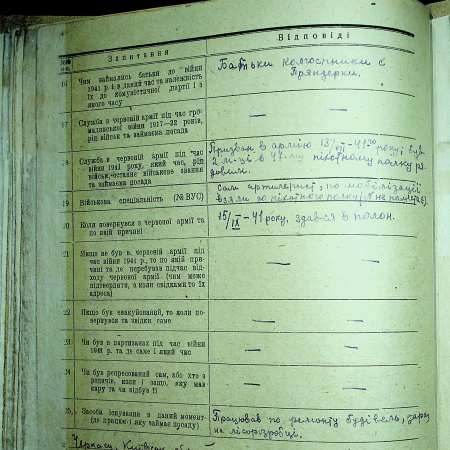 Запитання
Відповіді
16
Чим займались батьки до війни
1941 р. і в даний час та належність
їх до комуністичної партії і з
якого часу
Батьки колгоспники с
17
Служба в червоній армії під час гро-
мадянської війни 1917—22 років,
рід військ та займаєма посада
— —
18
Служба в червоній армії під час
війни 1941 року, який час, рід
військ, останнє військове звання
та займаєма посада
Призван в армію 13/VII – 41 року і був
2 м-ці в 47-му пікотному полку ря-
довим.
19
Військова спеціальність (№ ВУС)
Сам артилерист, по мобілізації
взяли до пікотного полку
20
Коли повернувся з червоної армії та
по якій причині
15/IX – 41 року, здався в полон.
21
Якщо не був в червоній армії під
час війни 1941 р., то по якій при-
чині та де перебував підчас від-
ходу червоної армії (чим може
підтвердити, з коли свідками то їх
адреса)
— —
22
Якщо був евакуйований, то коли по-
вернувся та звідки саме
— —
23
Чи був в партизанах під час війни
1941 р. та де саме і який час
— —
24
Чи був репресований сам, або хто з
родичів, коли і защо, яку мав
кару та чи відбув її
— —
25
Засоби існування в даний момент
(де працює і яку займає посаду)
Працював по ремонту будівель, зараз
на лісорозробці.
Черкаси, Київської